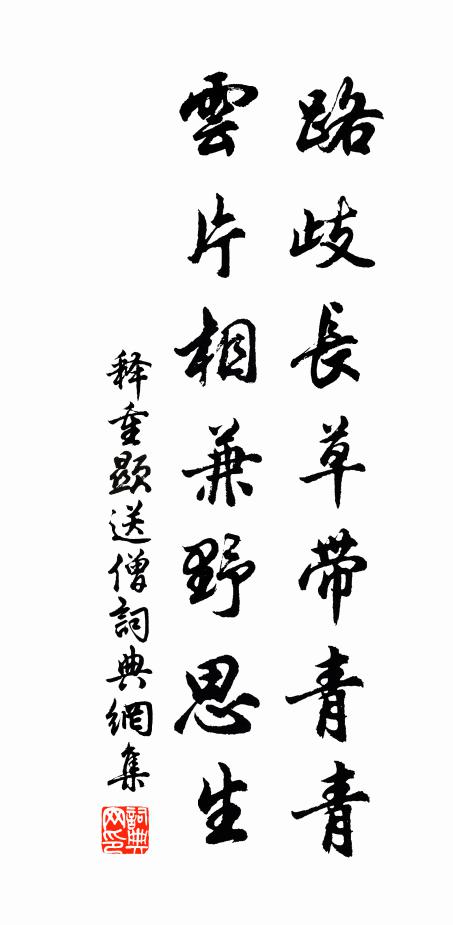 路歧長草帶青青
雲片相兼野思生
释重顯送僧詞典網集
詞典网印